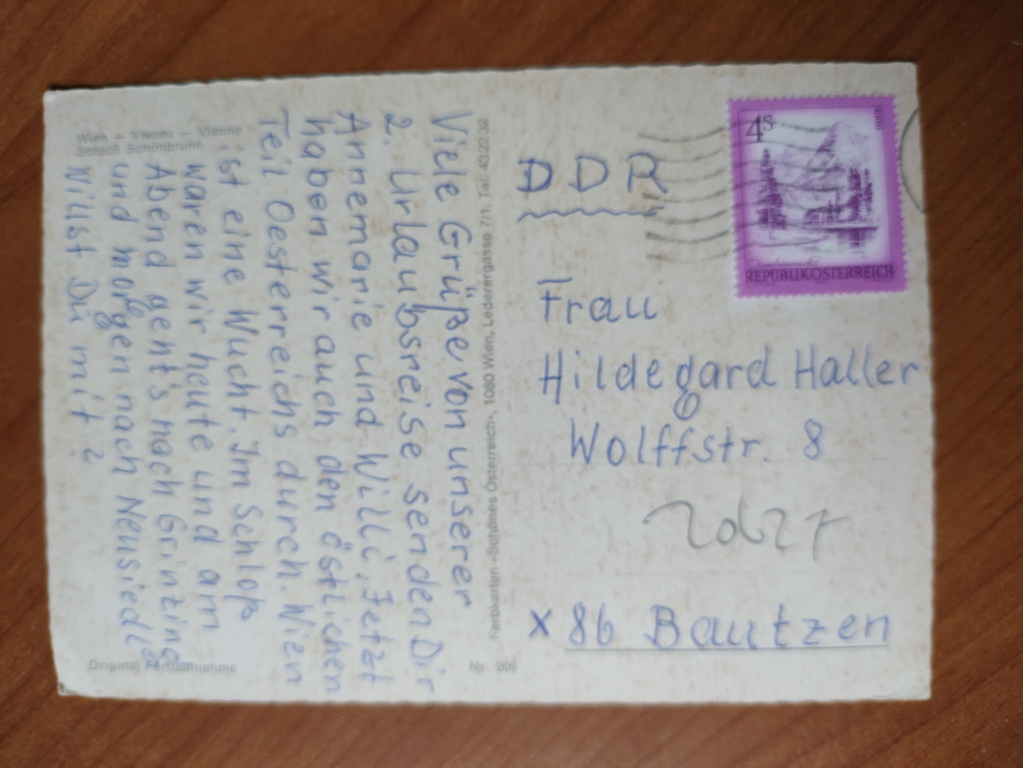 Wien — Vienna — Vienne
Schloß Schönbrunn
Viele Grüße von unserer
2. Urlaubsreise senden Dir
Annemarie und Willi. Jetzt
haben wir auch den östlichen
Teil Oesterreichs durch. Wien
ist eine Wucht. Im Schloß
waren wir heute und am
Abend geht's nach Grinzing
und morgen nach Neusiedl
Willst Du mit?
Original Farbaufnahme
Nr. 206
Farbkarten «Schönes Österreich», 1080 Wien, Lederergasse 7/1, Tel. 43 22 32
4S
REPUBLIK ÖSTERREICH
DDR
Frau
Hildegard Haller
Wolffstr. 8
x 86 Bautzen